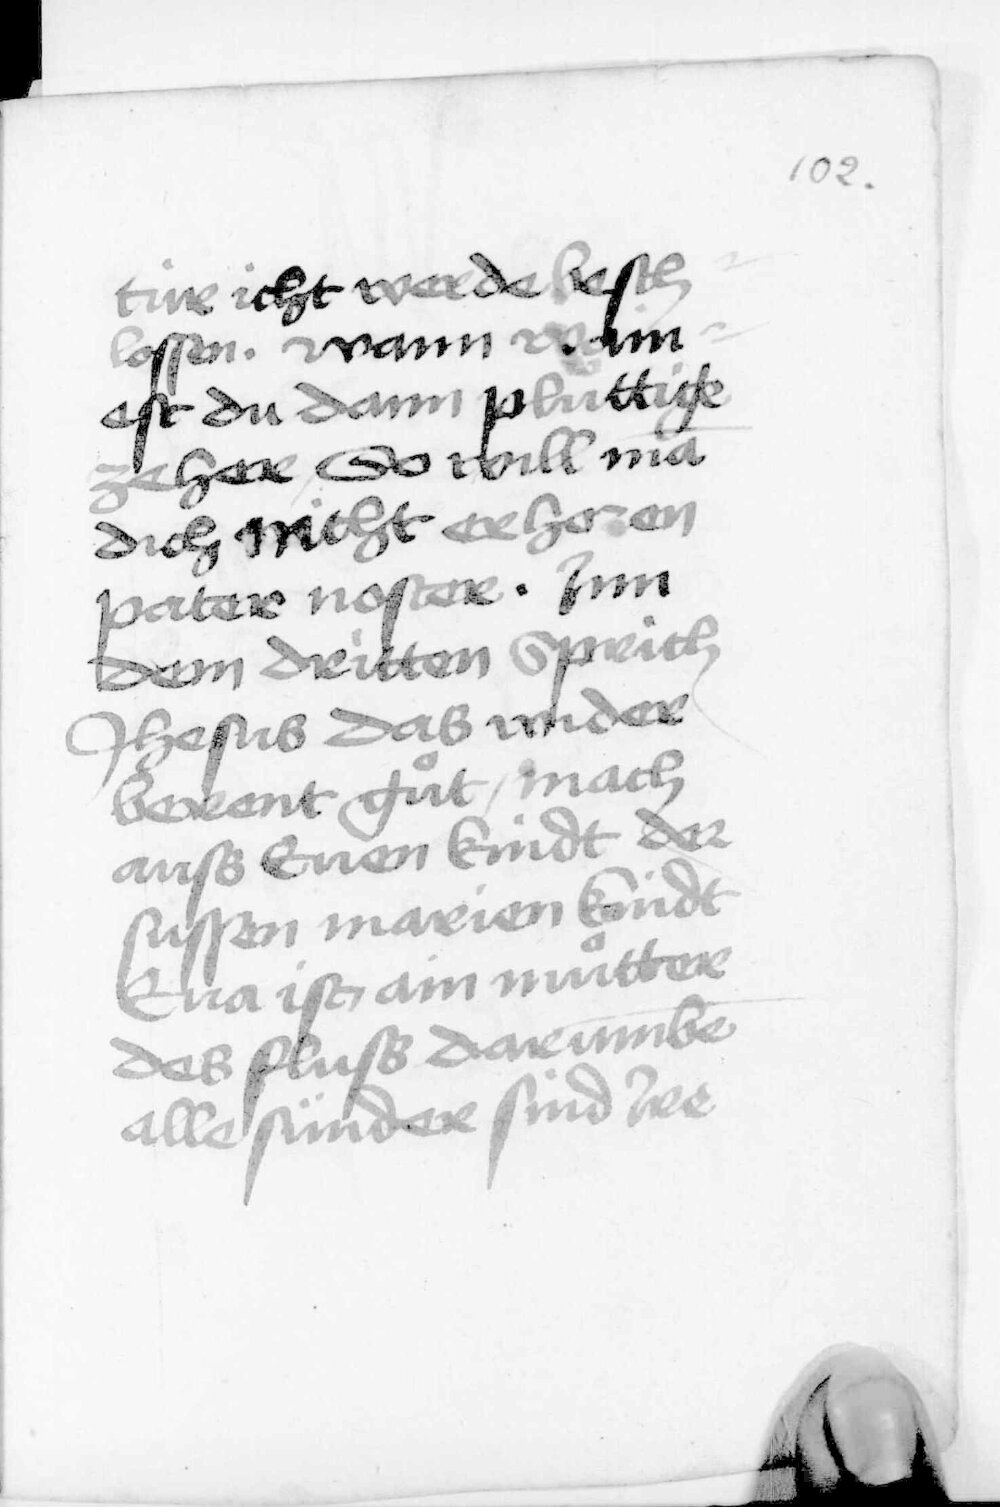 102.
tür icht werde besch
lossen. wann wain
est du dann pluttige
zeher / So will mā
dich nitht erhoren
pater noster. Inn
dem dritten Sprich
Jhesus das wider
berent gůt / mach
auss Euen kindt der
sussen marien kindt
Eua ist ain můtter
des fluss darumbe
alle sünder sind Ire